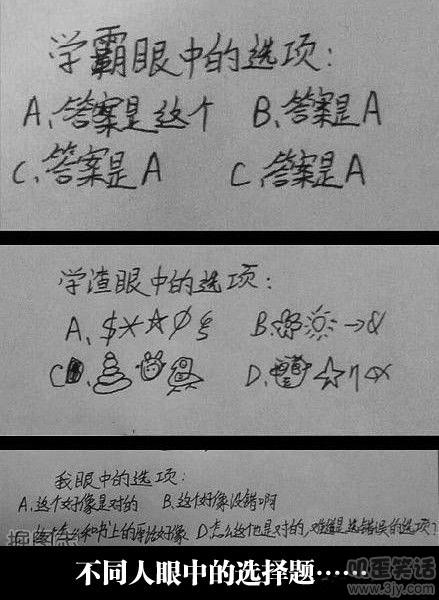 学霸眼中的选项：
A、答案是这个 B、答案是A
C、答案是A C、答案是A
学渣眼中的选项：
A、$ B、
C D、
我眼中的选项：
A、这个好像是对的 B、这个好像没错啊
和书上的 好像 D、怎么这也是对的，难道是选错误的选项？
掘图
不同人眼中的选择题……
叩王笑话
www.3jy.com